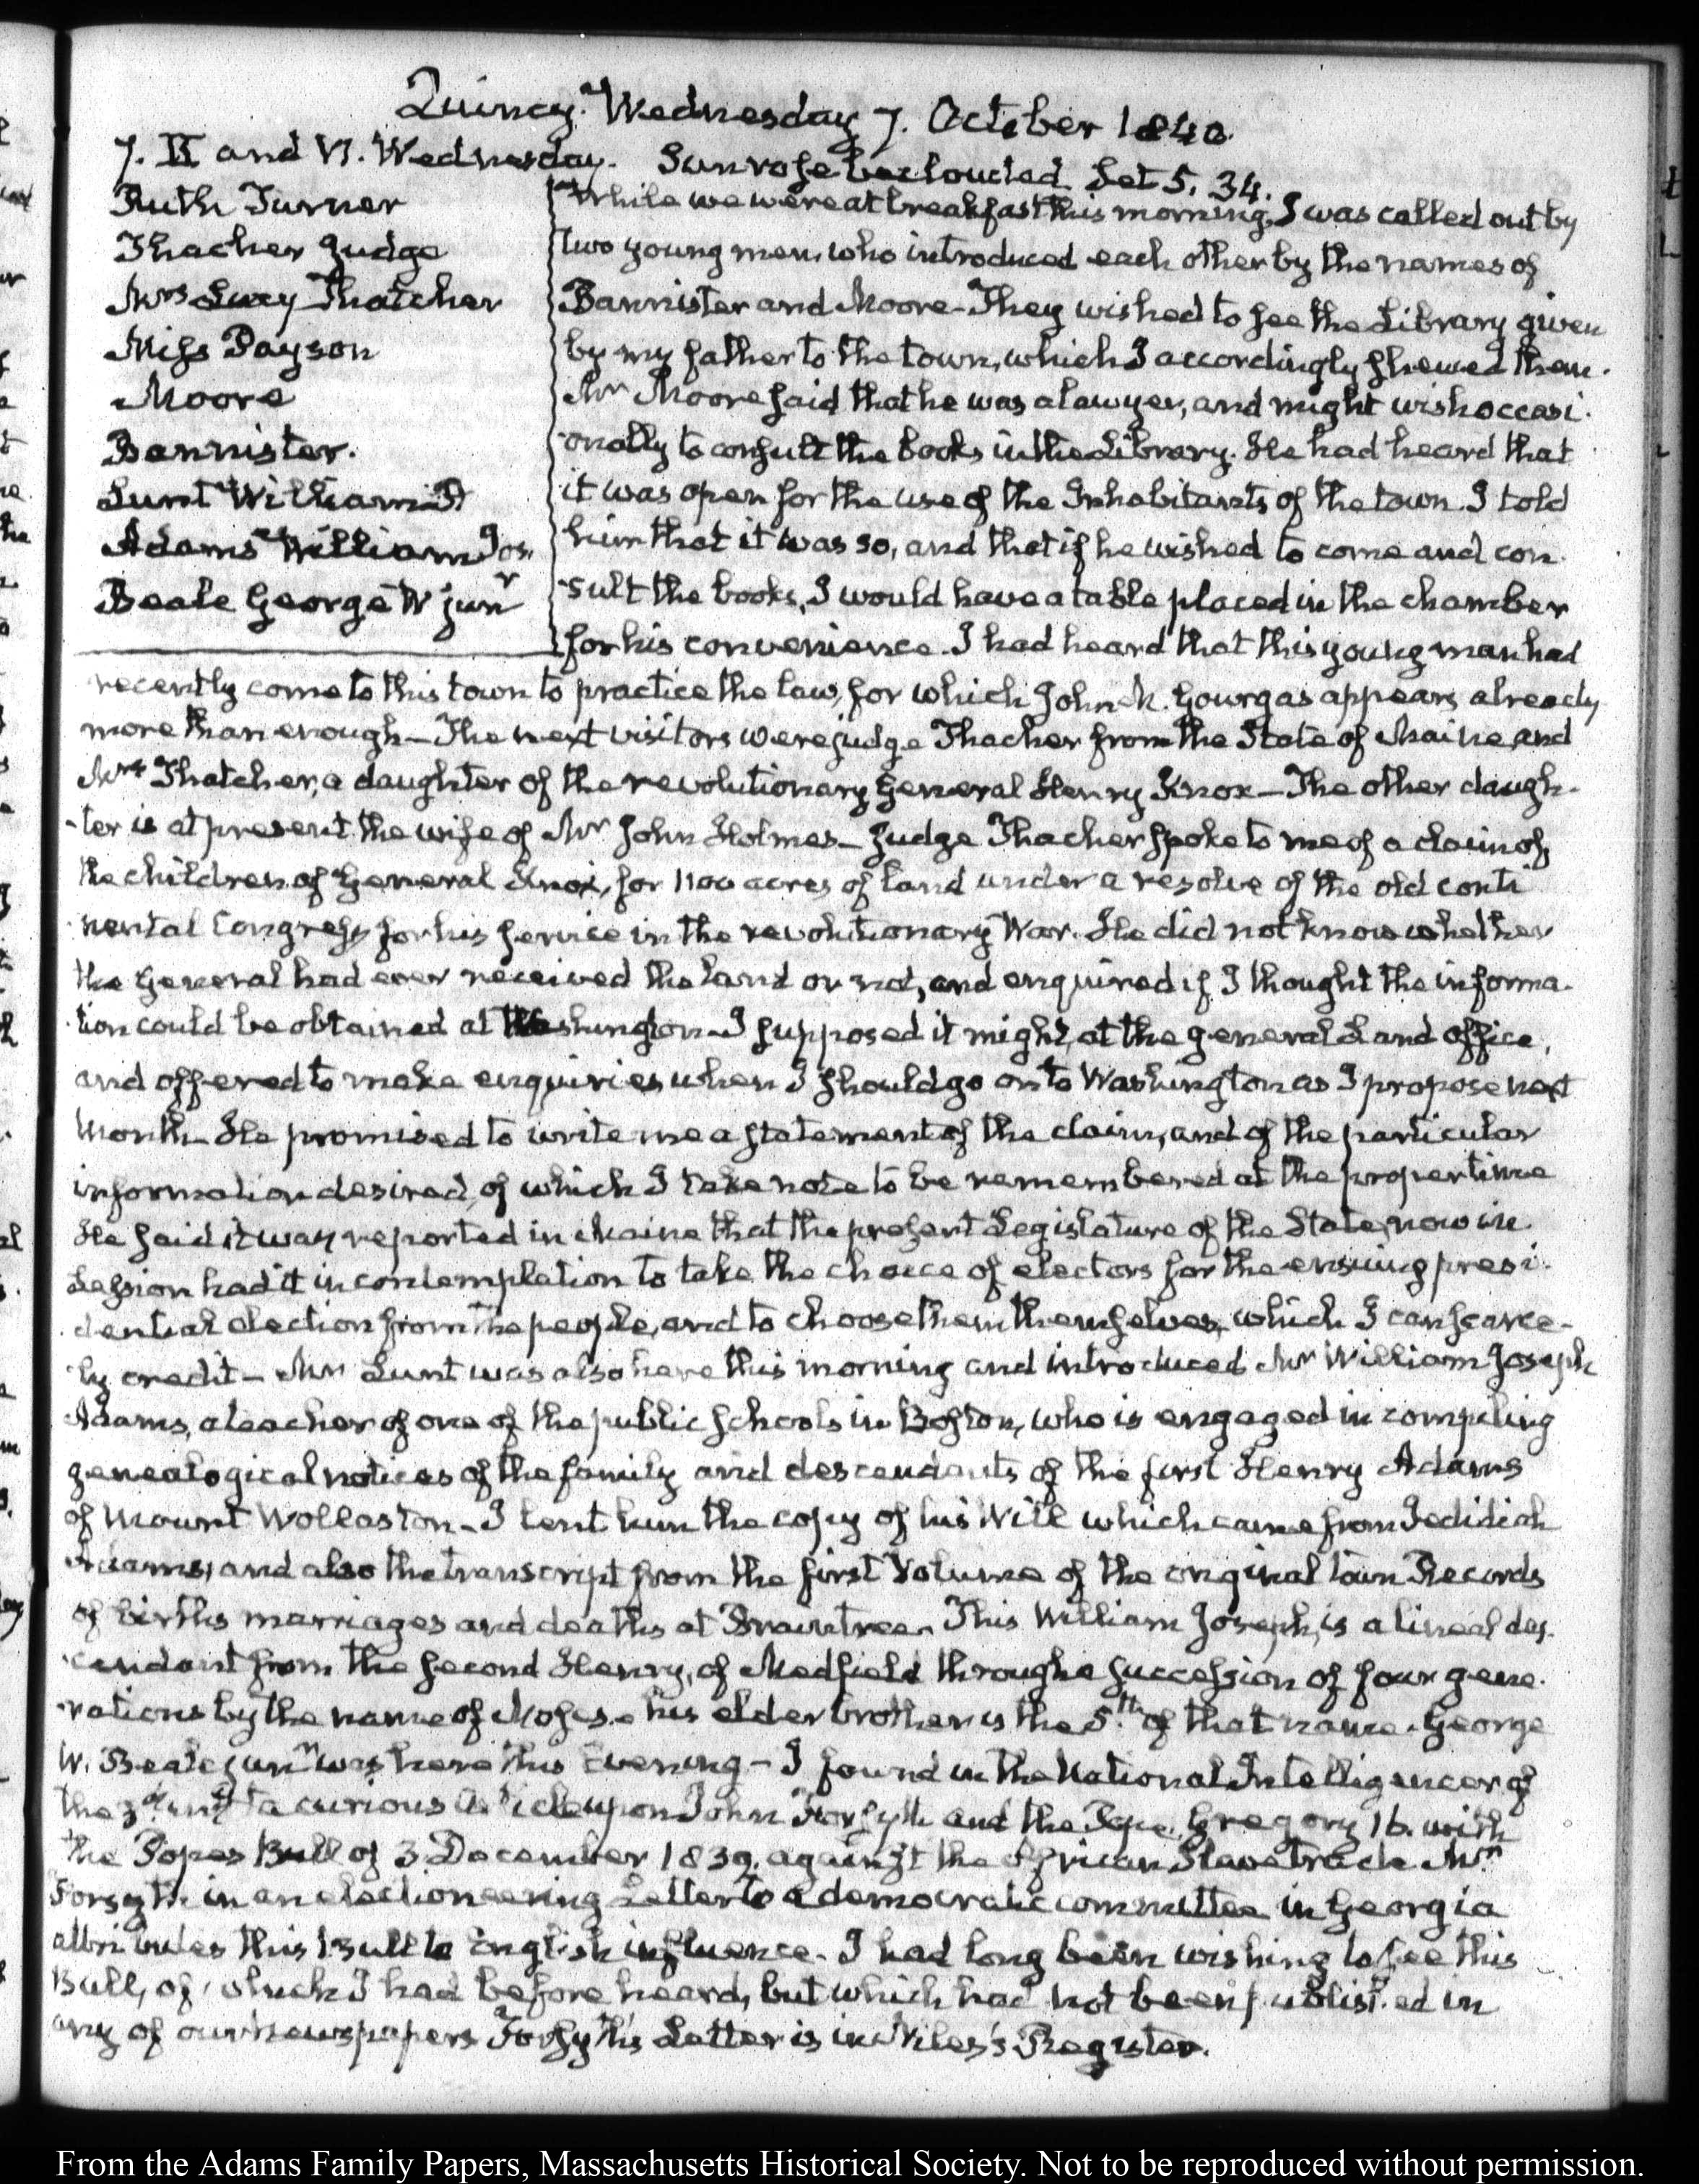 Quincy. Wednesday 7. October 1840.
7. IV and VI. Wednesday. Sun rose beclouded Set 5. 34.
Ruth Turner
Thacher Judge
Mrs Lucy Thatcher
Miss Payson
Moore
Bannister.
Lunt William P
Adams William Jos.
Beale George W junr
While we were at breakfast this morning, I was called out by
two young men, who introduced each other by the names of
Bannister and Moore– They wished to see the Library given
by my father to the town, which I accordingly shewed them.
Mr Moore said that he was a lawyer, and might wish occasi-
onally to consult the books in the Library. He had heard that
it was open for the use of the Inhabitants of the town. I told
him that it was so, and that if he wished to come and con-
-sult the books, I would have a table placed in the chamber
for his convenience. I had heard that this young man had
recently come to this town to practice the law, for which John M. Gourgas appears already
more than enough– The next visitors were judge Thacher from the State of Maine, and
Mrs Thatcher, a daughter of the revolutionary General Henry Knox– The other daugh-
-ter is at present the wife of Mr John Holmes– Judge Thacher spoke to me of a claim of
the children of General Knox, for 1100 acres of land under a resolve of the old conti
-nental Congress for his service in the revolutionary War. He did not know whether
the General had ever received the land or not, and enquired if I thought the informa-
-tion could be obtained at Washington– I supposed it might, at the general Land office,
and offered to make enquiries when I should go on to Washington as I propose next
Month– He promised to write me a statement of the claim, and of the particular
information desired, of which I take note to be remembered at the proper time
He said it was reported in Maine that the present Legislature of the State, now in
Session had it in contemplation to take the choice of electors for the ensuing presi-
-dential election from the people, and to choose them themselves, which I can scarce-
-ly credit– Mr Lunt was also here this morning and introduced Mr William Joseph
Adams, a teacher of one of the public schools in Boston, who is engaged in compiling
genealogical notices of the family and descendants of the first Henry Adams
of Mount Wollaston– I lent him the copy of his Will which came from Jedidiah
Adams, and also the transcript from the first Volume of the original town Records
of births marriages and deaths at Braintree. This William Joseph, is a lineal des-
-cendant from the second Henry, of Medfield through a succession of four gene-
-rations by the name of Moses. his elder brother is the 5th of that name. George
W. Beale junr was here this Evening– I found in the National Intelligencer of
the 3d a curious Article upon John Forsyth and the Pope Gregory 16. with
the Popes Bull of 3. December 1839. against the African Slave trade Mr
Forsyth in an electioneering Letter to a democratic committee in Georgia
attributes this Bull to English influence. I had long been wishing to see this
Bull, of which I had before heard, but which had not been published in
any of our newspapers Forsyth's Letter is in Niles's Register.
From the Adams Family Papers, Massachusetts Historical Society. Not to be reproduced without permission.